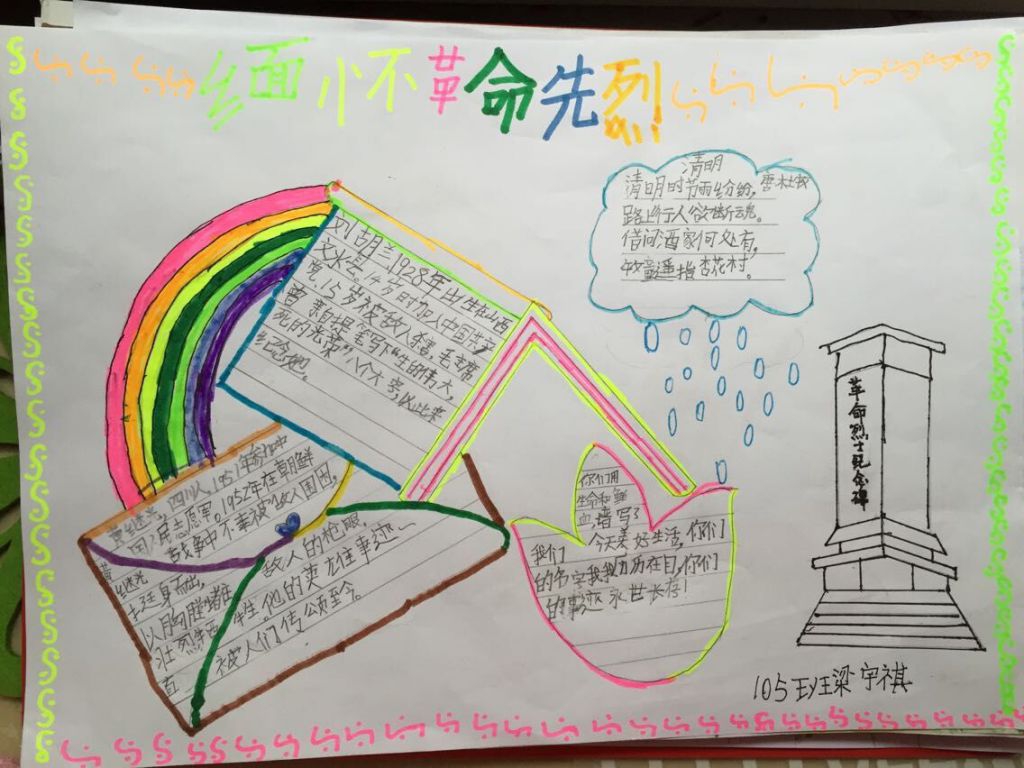 缅怀革命先烈
清明
清明时节雨纷纷,
路上行人欲断魂。
借问酒家何处有,
牧童遥指杏花村。
刘胡兰1928年出生在山西
文水县,14岁时加入中国共产
党,15岁被敌人杀害,毛主席
曾亲自提笔写下“生的伟大,
死的光荣”八个大字,以此来
纪念她。
黄继光,四川人,1951年参加中
国人民志愿军。1952年在朝鲜
战争中不幸被敌人围困,
黄继光
挺身而出,
以胸膛堵住敌人的枪眼,
壮烈牺牲。他的英雄事迹一
直被人们传颂至今。
你们用
生命和鲜
血谱写了
我们今天美好生活,你们
的名字我历历在目,你们
的事迹永世长存!
革命烈士纪念碑
105班梁宇祺